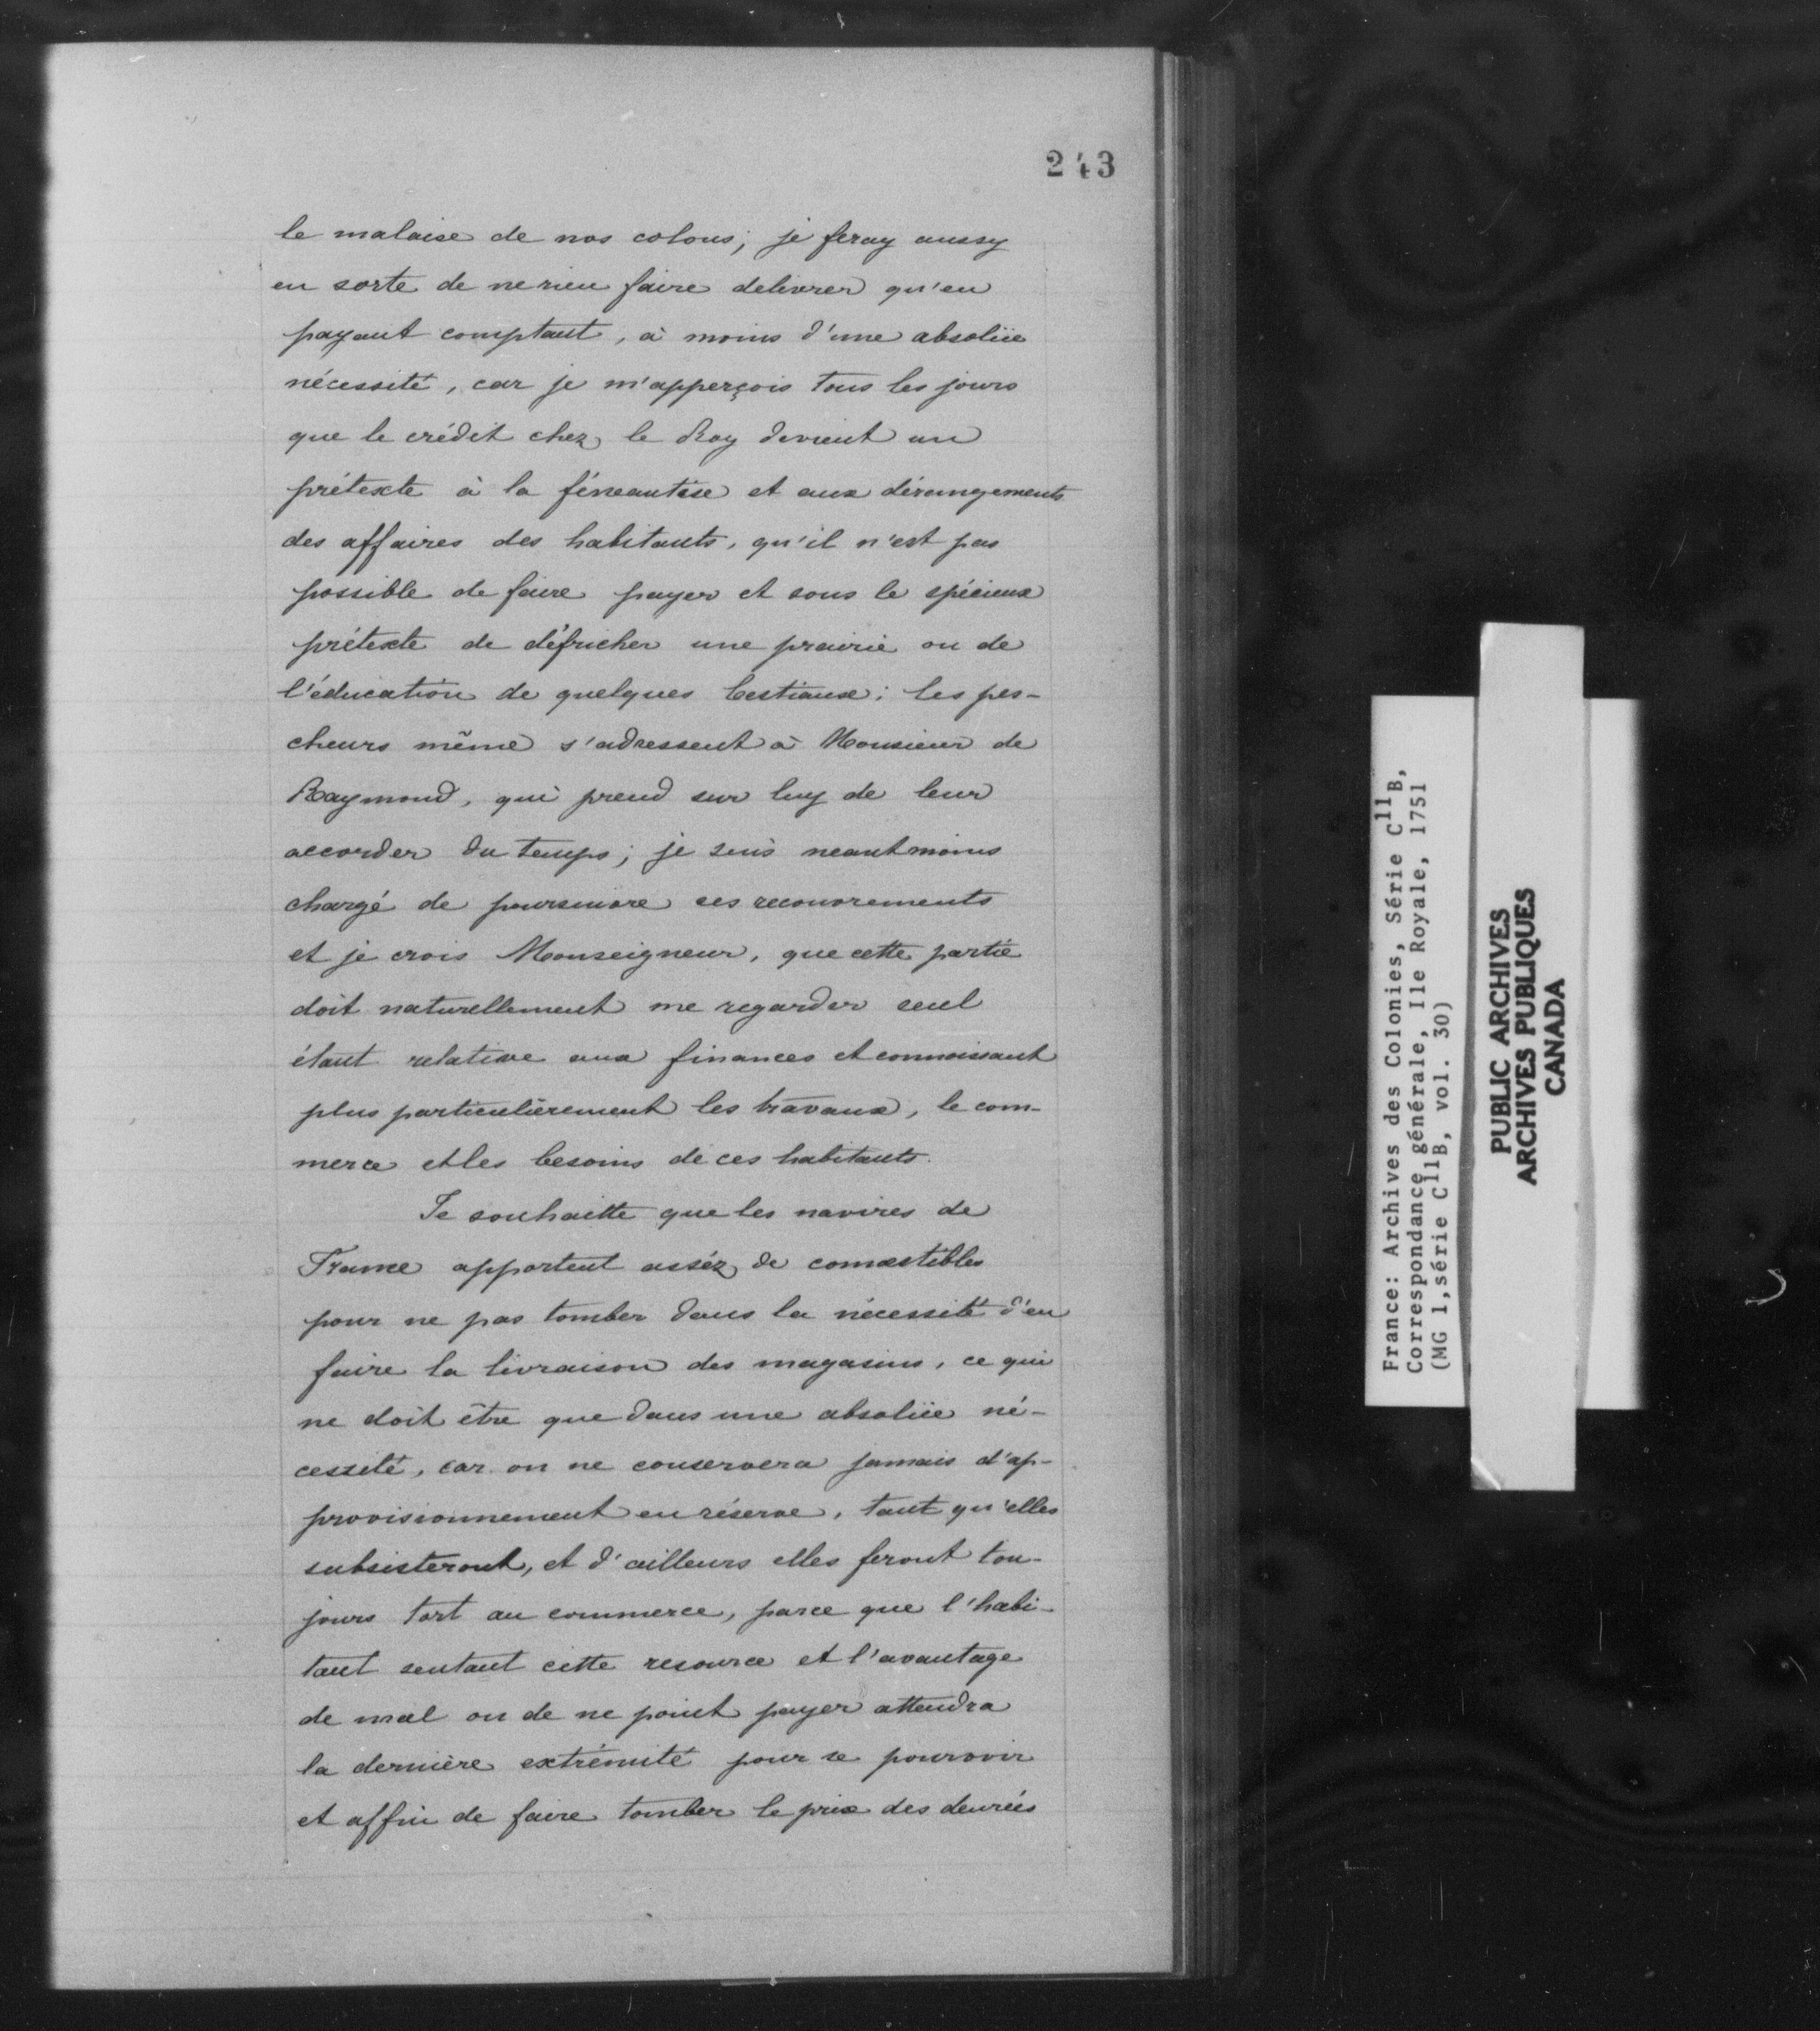 243
le malaise de nos colons; je feray aussy
en sorte de ne rien faire delivrer qu'en
payant comptant, à moins d'une absolüe
nécessité, car je m'apperçois tous les jours
que le crédit chez le Roy devient un
prétexte à la féneantise et aux dérangements
des affaires des habitants, qu'il n'est pas
possible de faire payer et sous le spécieux
prétexte de défricher une prairie ou de
l'éducation de quelques bestiaux; les pes-
cheurs même s'adressent à Monsieur de
Raymond, qui prend sur luy de leur
accorder du temps; je suis neantmoins
chargé de poursuivre ses recouvrements
et je crois Monseigneur, que cette partie
doit naturellement me regarder seul
étant relative aux finances et connoissant
plus particulièrement les travaux, le com-
merce et les besoins de ces habitants.
Je souhaitte que les navires de
France apportent asséz de comestibles
pour ne pas tomber dans la nécessité d'en
faire la livraison des magasins, ce qui
ne doit être que dans une absolüe né-
cessité, car on ne conservera jamais d'ap-
provisionnement en réserve, tant qu'elles
subsisteront, et d'ailleurs elles feront tou-
jours tort au commerce, parce que l'habi-
tant sentant cette resource et l'avantage
de mal ou de ne point payer attendra
la dernière extrémité pour se pourvoir
et affin de faire tomber le prix des denrées
France: Archives des Colonies, Série C11B,
Correspondance générale, Ile Royale, 1751
(MG 1,série C11B, vol. 30)
PUBLIC ARCHIVES
ARCHIVES PUBLIQUES
CANADA